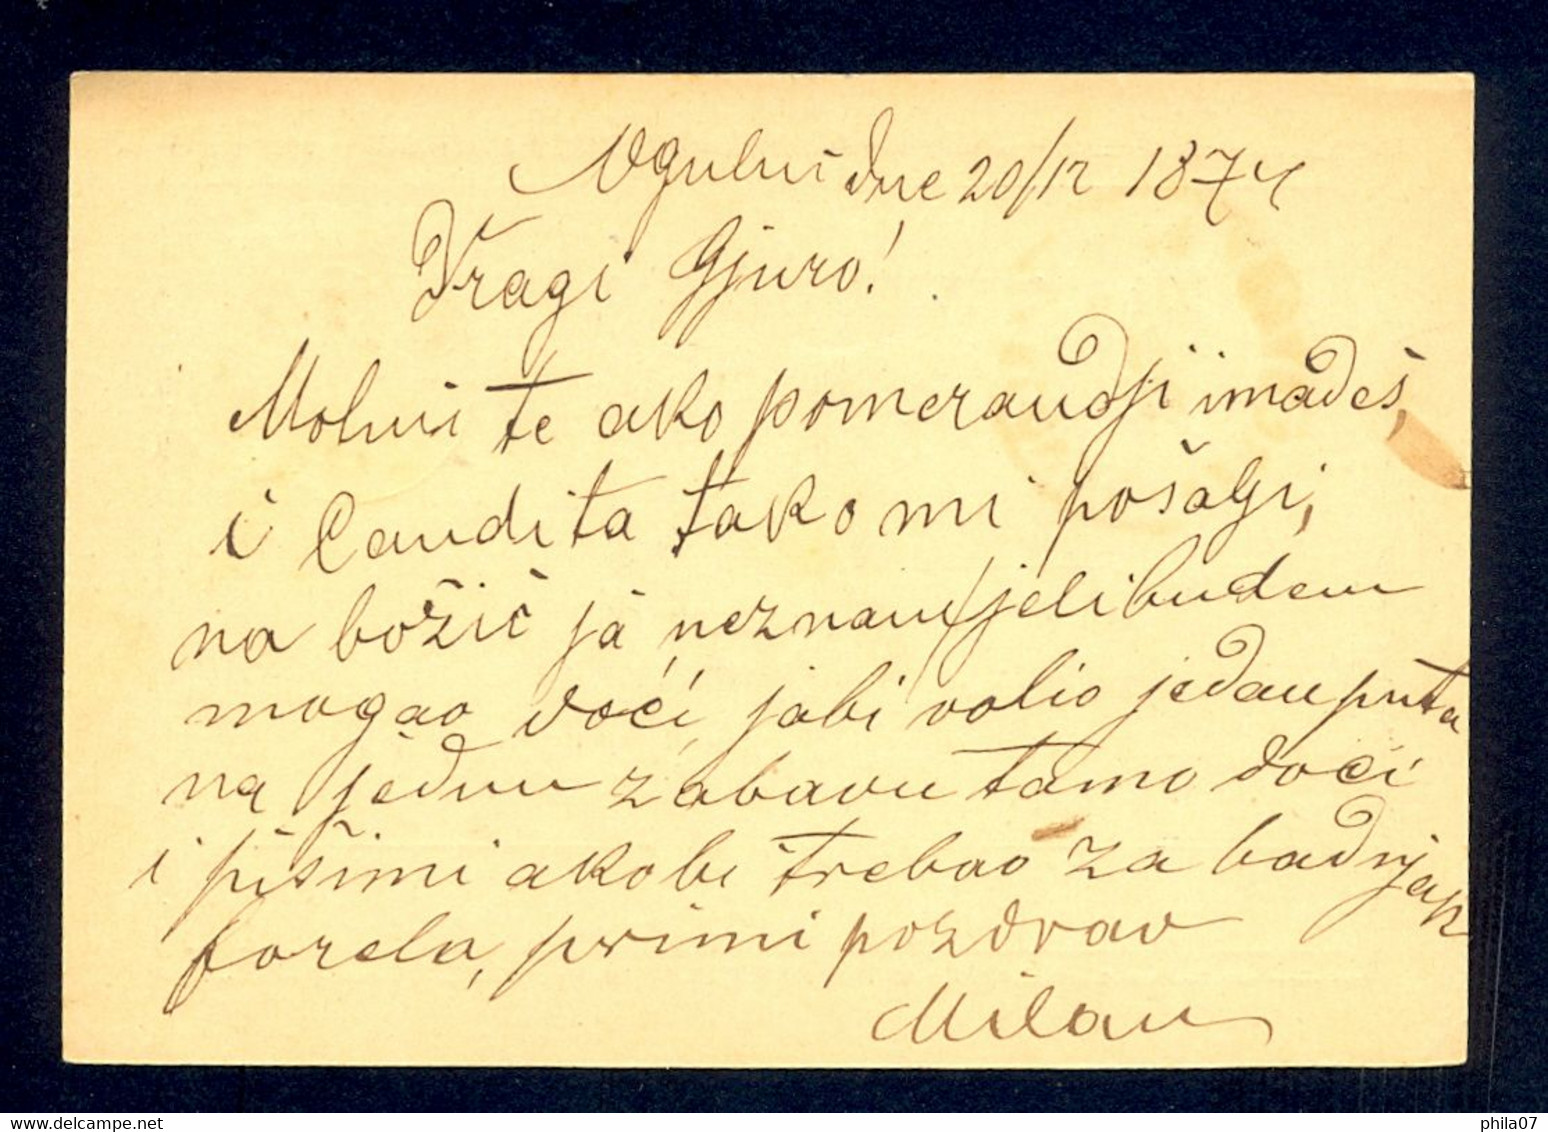 Ogulin dne 20/12 1874
Dragi Gjuro!
Molim te ako pomerandji imadeš,
i Candita tako mi pošalji,
na božić ja neznam jeli budem
mogao doći, jabi volio jedanputa
na jednu zabavu tamo doći
i pišimi akobi trebao za badnjak
forela, primi pozdrav
Milan
phila07